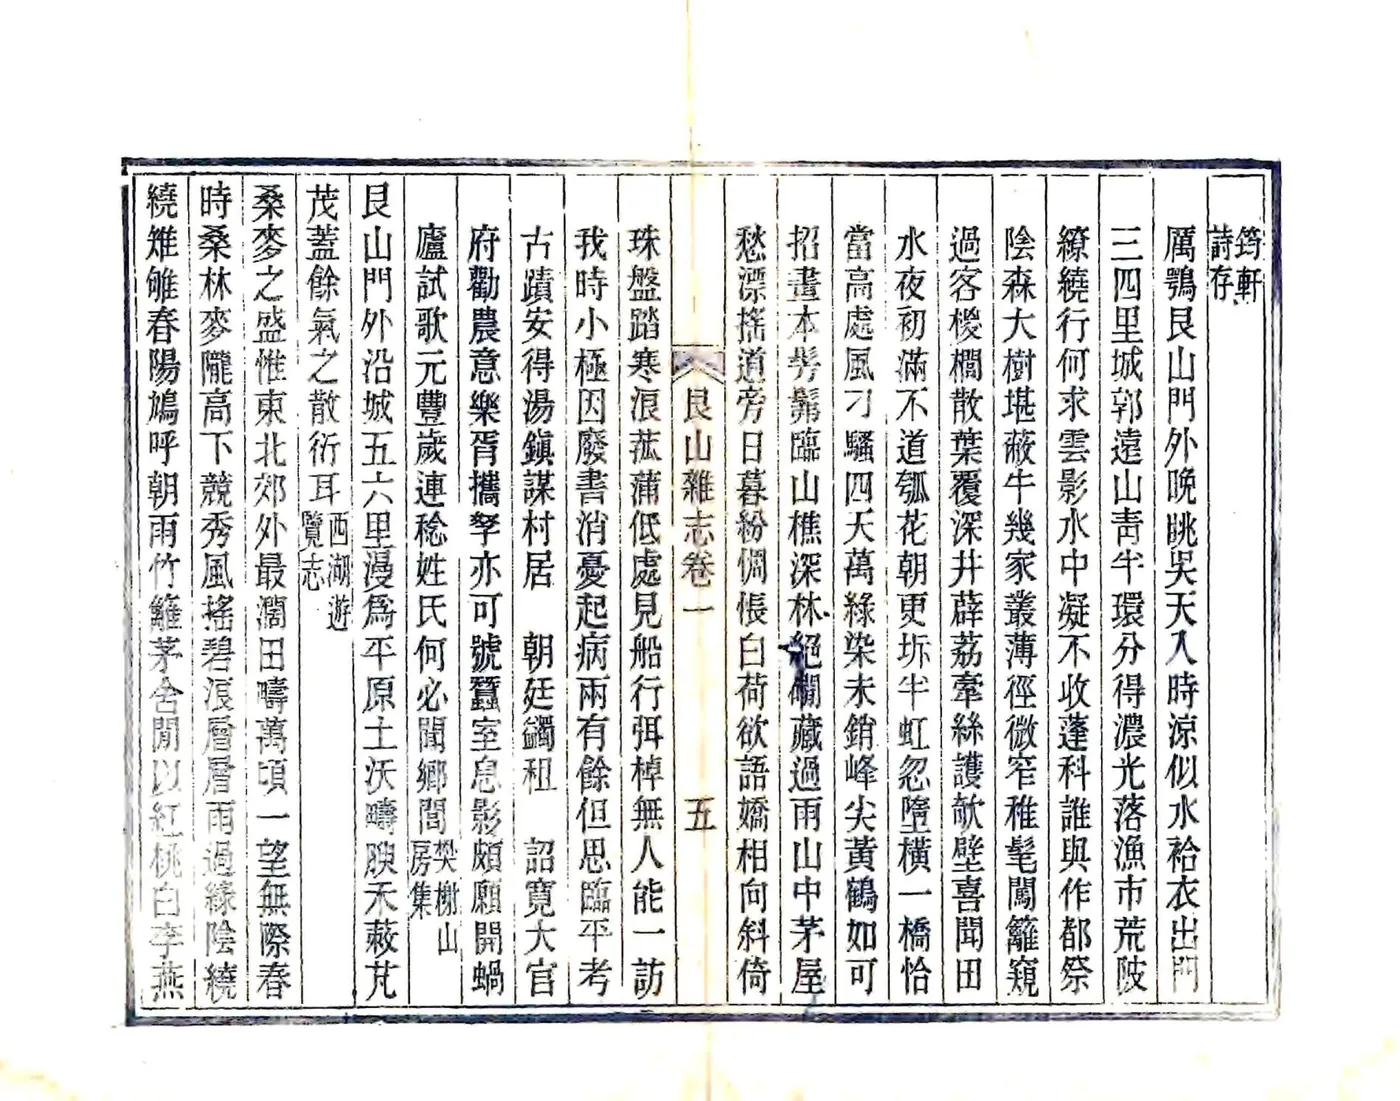 筠軒
詩存
厲鶚艮山門外晚眺吳天入時涼似水袷衣出門
三四里城郭遠山靑半環分得濃光落漁市荒陂
繚繞行何求雲影水中凝不收蓬科誰與作都祭
陰森大樹堪蔽牛幾家叢薄徑微窄稚髦闖籬窺
過客椶櫚散葉覆深井薜荔牽絲護欹壁喜聞田
水夜初滿不道瓠花朝更坼半虹忽墮橫一橋恰
當高處風刁騷四天萬綠染未銷峰尖黃鶴如可
招畫本髣髴臨山樵深林絕磵藏過雨山中茅屋
愁漂搖道旁日暮紛惆悵白荷欲語嬌相向斜倚
艮山雜志卷一
五
珠盤踏寒浪菰蒲低處見船行弭棹無人能一訪
我時小極因廢書消憂起病兩有餘但思臨平考
古蹟安得湯鎮謀村居 朝廷蠲租 詔寬大官
府勸農意樂胥攜孥亦可號蠶室息影頗願開蝸
廬試歌元豐歲連稔姓氏何必聞鄉閭樊榭山
房集
艮山門外沿城五六里漫爲平原土沃疇腴禾蔌芃
茂蓋餘氣之散衍耳西湖遊
覽志
桑麥之盛惟東北郊外最濶田疇萬頃一望無際春
時桑林麥隴高下競秀風搖碧浪層層雨過綠陰繞
繞雉雊春陽鳩呼朝雨竹籬茅舍閒以紅桃白李燕